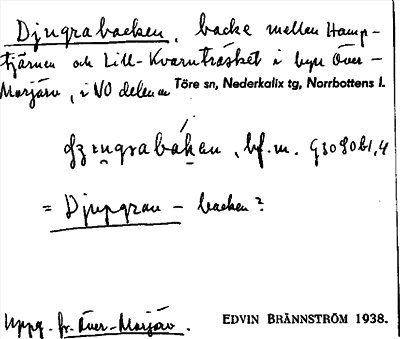 Djngrabacken, backe mellan Hamp-
tjärnen och Lill-Kvarnträsket i byn Över-
Morjärv, i NO delen av Töre sn, Nederkalix tg, Norrbottens l.
bf. m.
= Djupgrav - backen?
Uppg. fr. Över-Morjärv.
EDVIN BRÄNNSTRÖM 1938.